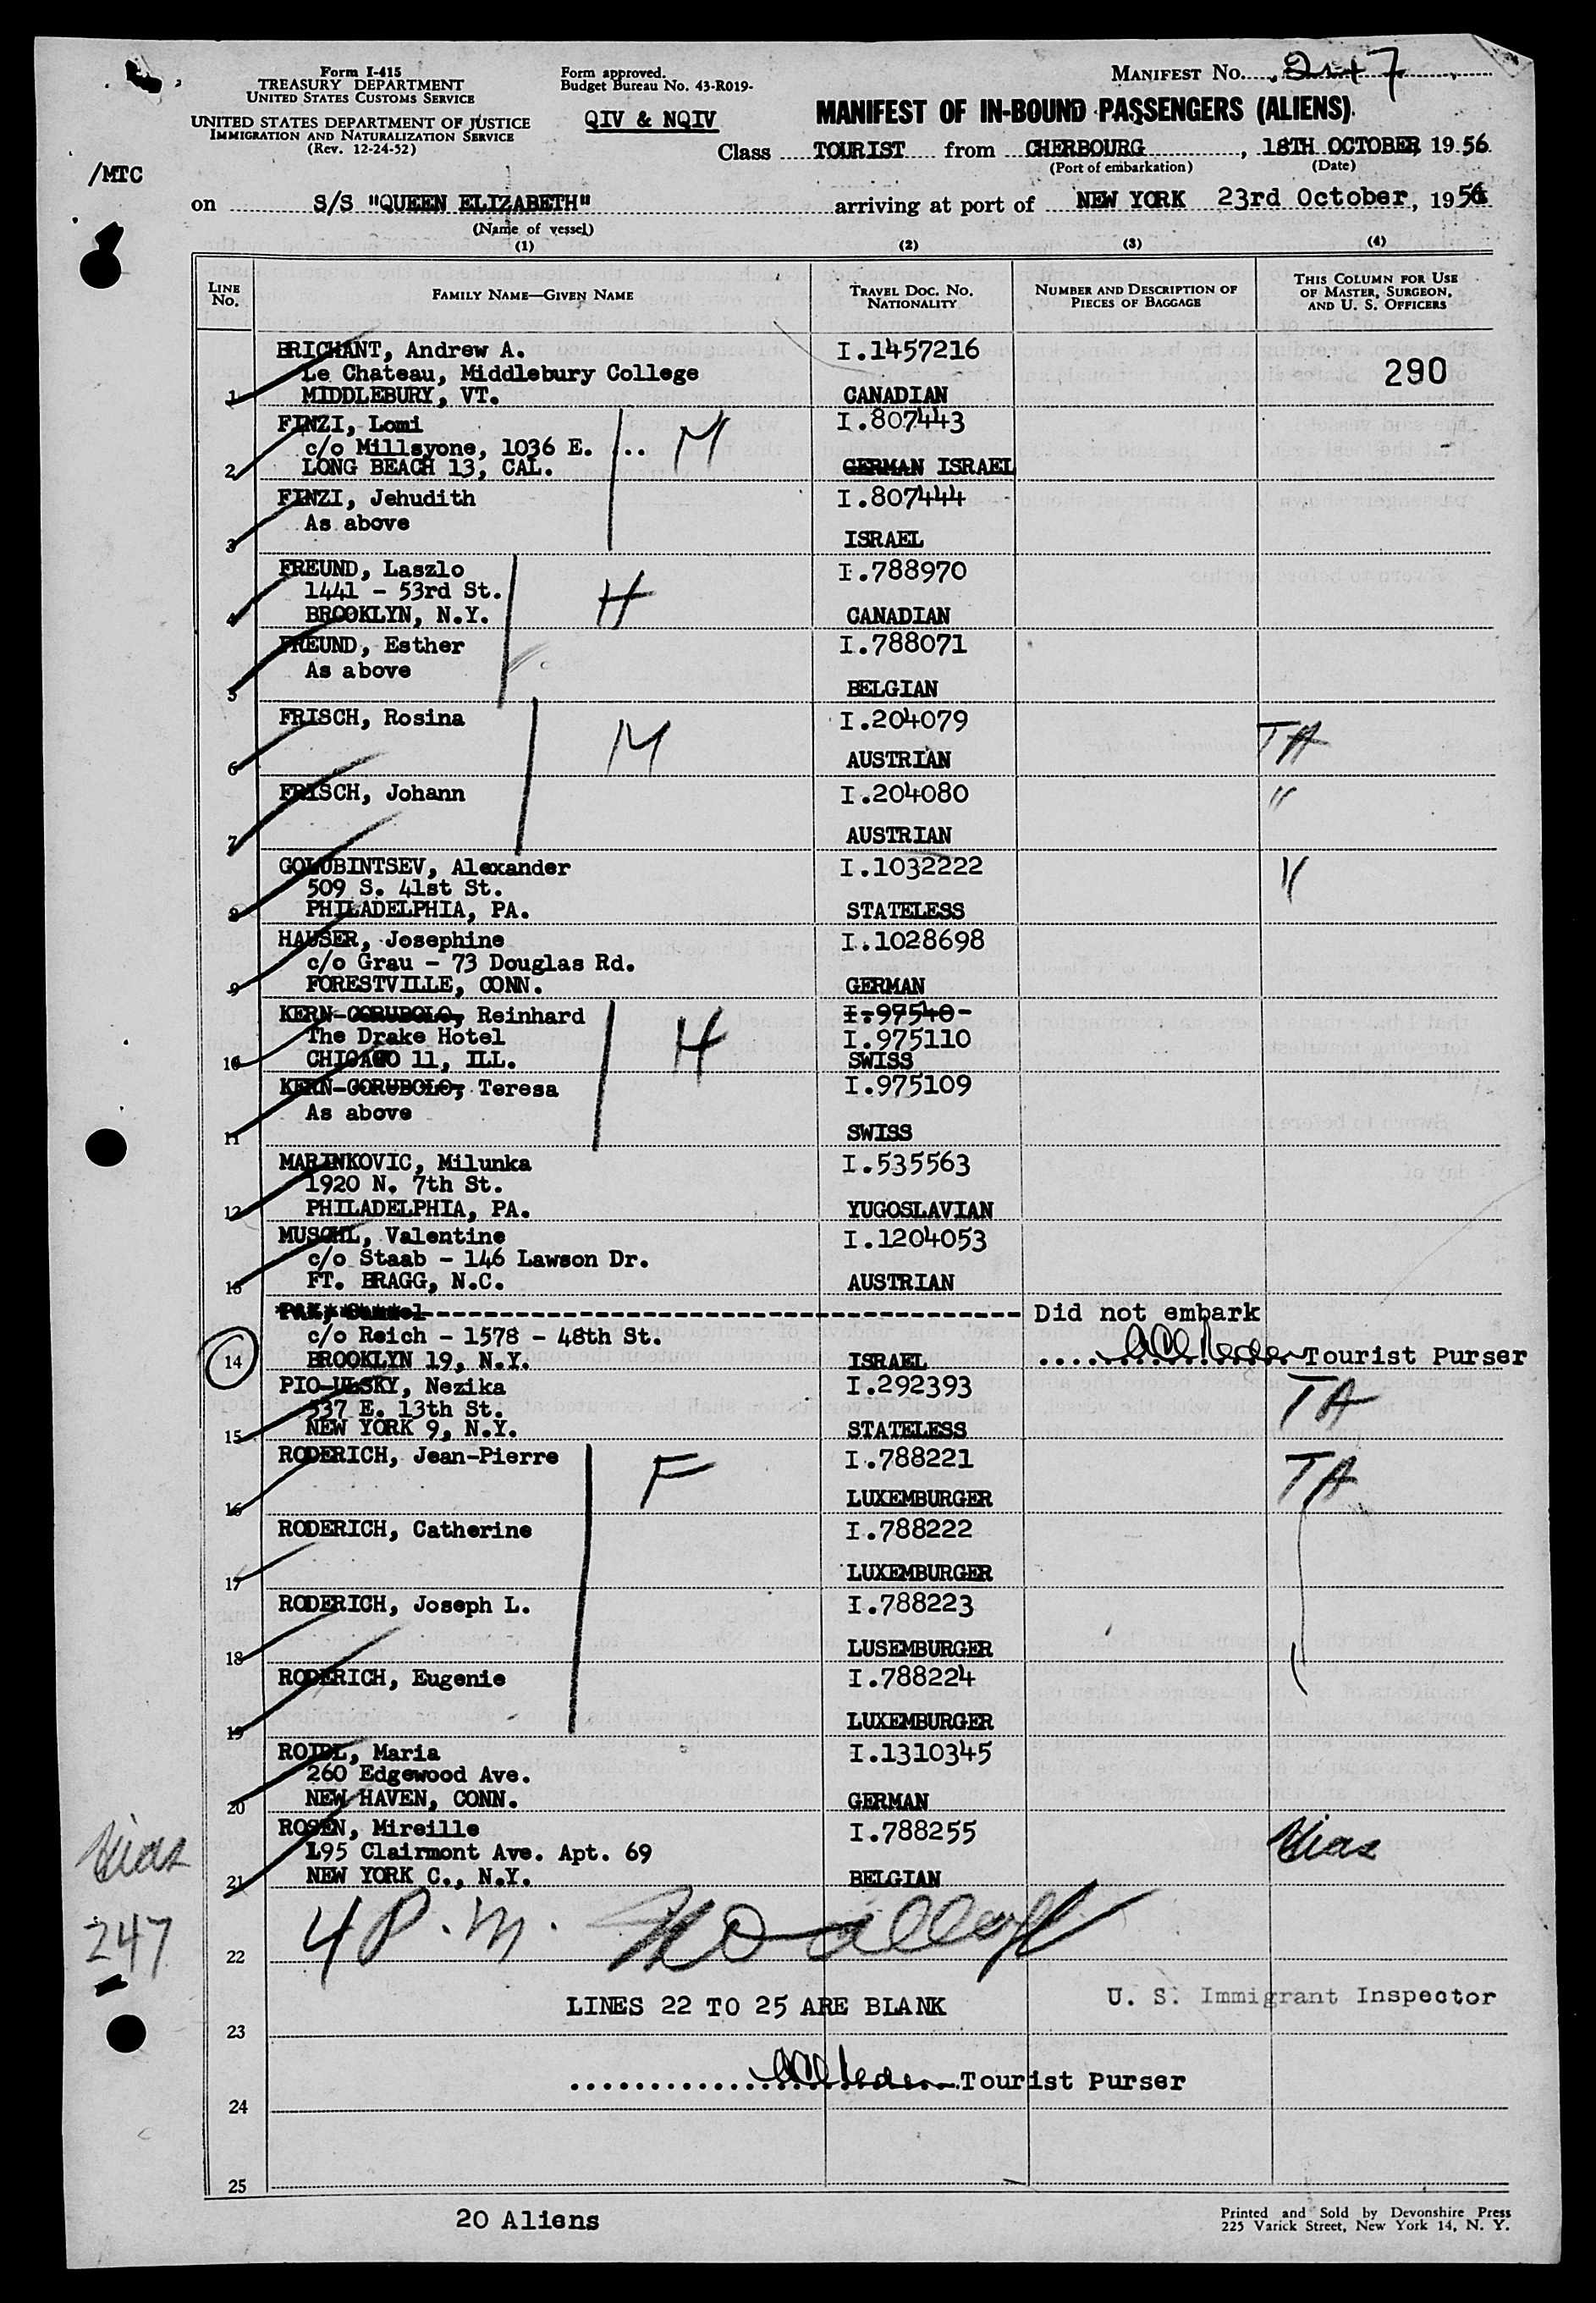 Form I-415
TREASURY DEPARTMENT
UNITED STATES CUSTOMS SERVICE
UNITED STATES DEPARTMENT OF JUSTICE
IMMIGRATION AND NATURALIZATION SERVICE
(Rev. 12-24-52)
Form approved.
Budget Bureau No. 43-R019-
QIV & NQIV
MANIFEST NO. 247
MANIFEST OF IN-BOUND PASSENGERS (ALIENS)
Class TOURIST from CHERBOURG, 18TH OCTOBER, 1956
(Port of embarkation) (Date)
/MTC
on S/S "QUEEN ELIZABETH" arriving at port of NEW YORK 23rd October, 1956
(Name of vessel)
(1) (2) (3) (4)
LINE NO. FAMILY NAME—GIVEN NAME TRAVEL DOC. NO. NATIONALITY NUMBER AND DESCRIPTION OF PIECES OF BAGGAGE THIS COLUMN FOR USE OF MASTER, SURGEON, AND U. S. OFFICERS
BRICHANT, Andrew A. I.1457216
Le Chateau, Middlebury College 290
1 MIDDLEBURY, VT. CANADIAN
FINZI, Lomi I.807443
c/o Millsyone, 1036 E. ... M
2 LONG BEACH 13, CAL. GERMAN ISRAEL
FINZI, Jehudith I.807444
As above
3 ISRAEL
FREUND, Laszlo I.788970
1441 - 53rd St. H
4 BROOKLYN, N.Y. CANADIAN
FREUND, Esther I.788071
As above
5 BELGIAN
FRISCH, Rosina I.204079
M TA
6 AUSTRIAN
FRISCH, Johann I.204080 "
7 AUSTRIAN
GOLUBINTSEV, Alexander I.1032222 "
509 S. 41st St.
8 PHILADELPHIA, PA. STATELESS
HAUSER, Josephine I.1028698
c/o Grau - 73 Douglas Rd.
9 FORESTVILLE, CONN. GERMAN
KERN-GORUBOLO, Reinhard I.97540-
The Drake Hotel H I.975110
10 CHICAGO 11, ILL. SWISS
KERN-GORUBOLO, Teresa I.975109
As above
11 SWISS
MARINKOVIC, Milunka I.535563
1920 N. 7th St.
12 PHILADELPHIA, PA. YUGOSLAVIAN
MUSCHL, Valentine I.1204053
c/o Staab - 146 Lawson Dr.
13 FT. BRAGG, N.C. AUSTRIAN
PAK, Samuel Did not embark
c/o Reich - 1578 - 48th St.
14 BROOKLYN 19, N.Y. ISRAEL Tourist Purser
PIO-ULSKY, Nezika I.292393
537 E. 13th St. TA
15 NEW YORK 9, N.Y. STATELESS
RODERICH, Jean-Pierre I.788221
F TA
16 LUXEMBURGER
RODERICH, Catherine I.788222
17 LUXEMBURGER
RODERICH, Joseph L. I.788223
18 LUSEMBURGER
RODERICH, Eugenie I.788224
19 LUXEMBURGER
ROIDL, Maria I.1310345
260 Edgewood Ave.
20 NEW HAVEN, CONN. GERMAN
ROSEN, Mireille I.788255
195 Clairmont Ave. Apt. 69
21 NEW YORK C., N.Y. BELGIAN
247
4 P.m.
22
LINES 22 TO 25 ARE BLANK U. S. Immigrant Inspector
23
Tourist Purser
24
25
20 Aliens
Printed and Sold by Devonshire Press
225 Varick Street, New York 14, N. Y.